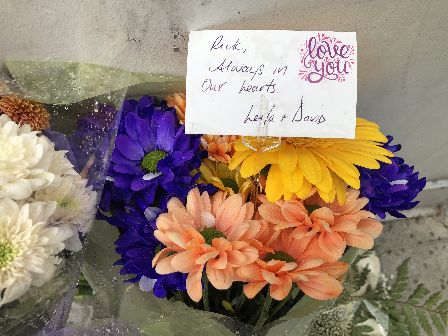 Rick,
Always in
Our hearts.
Leyla + David
love
you